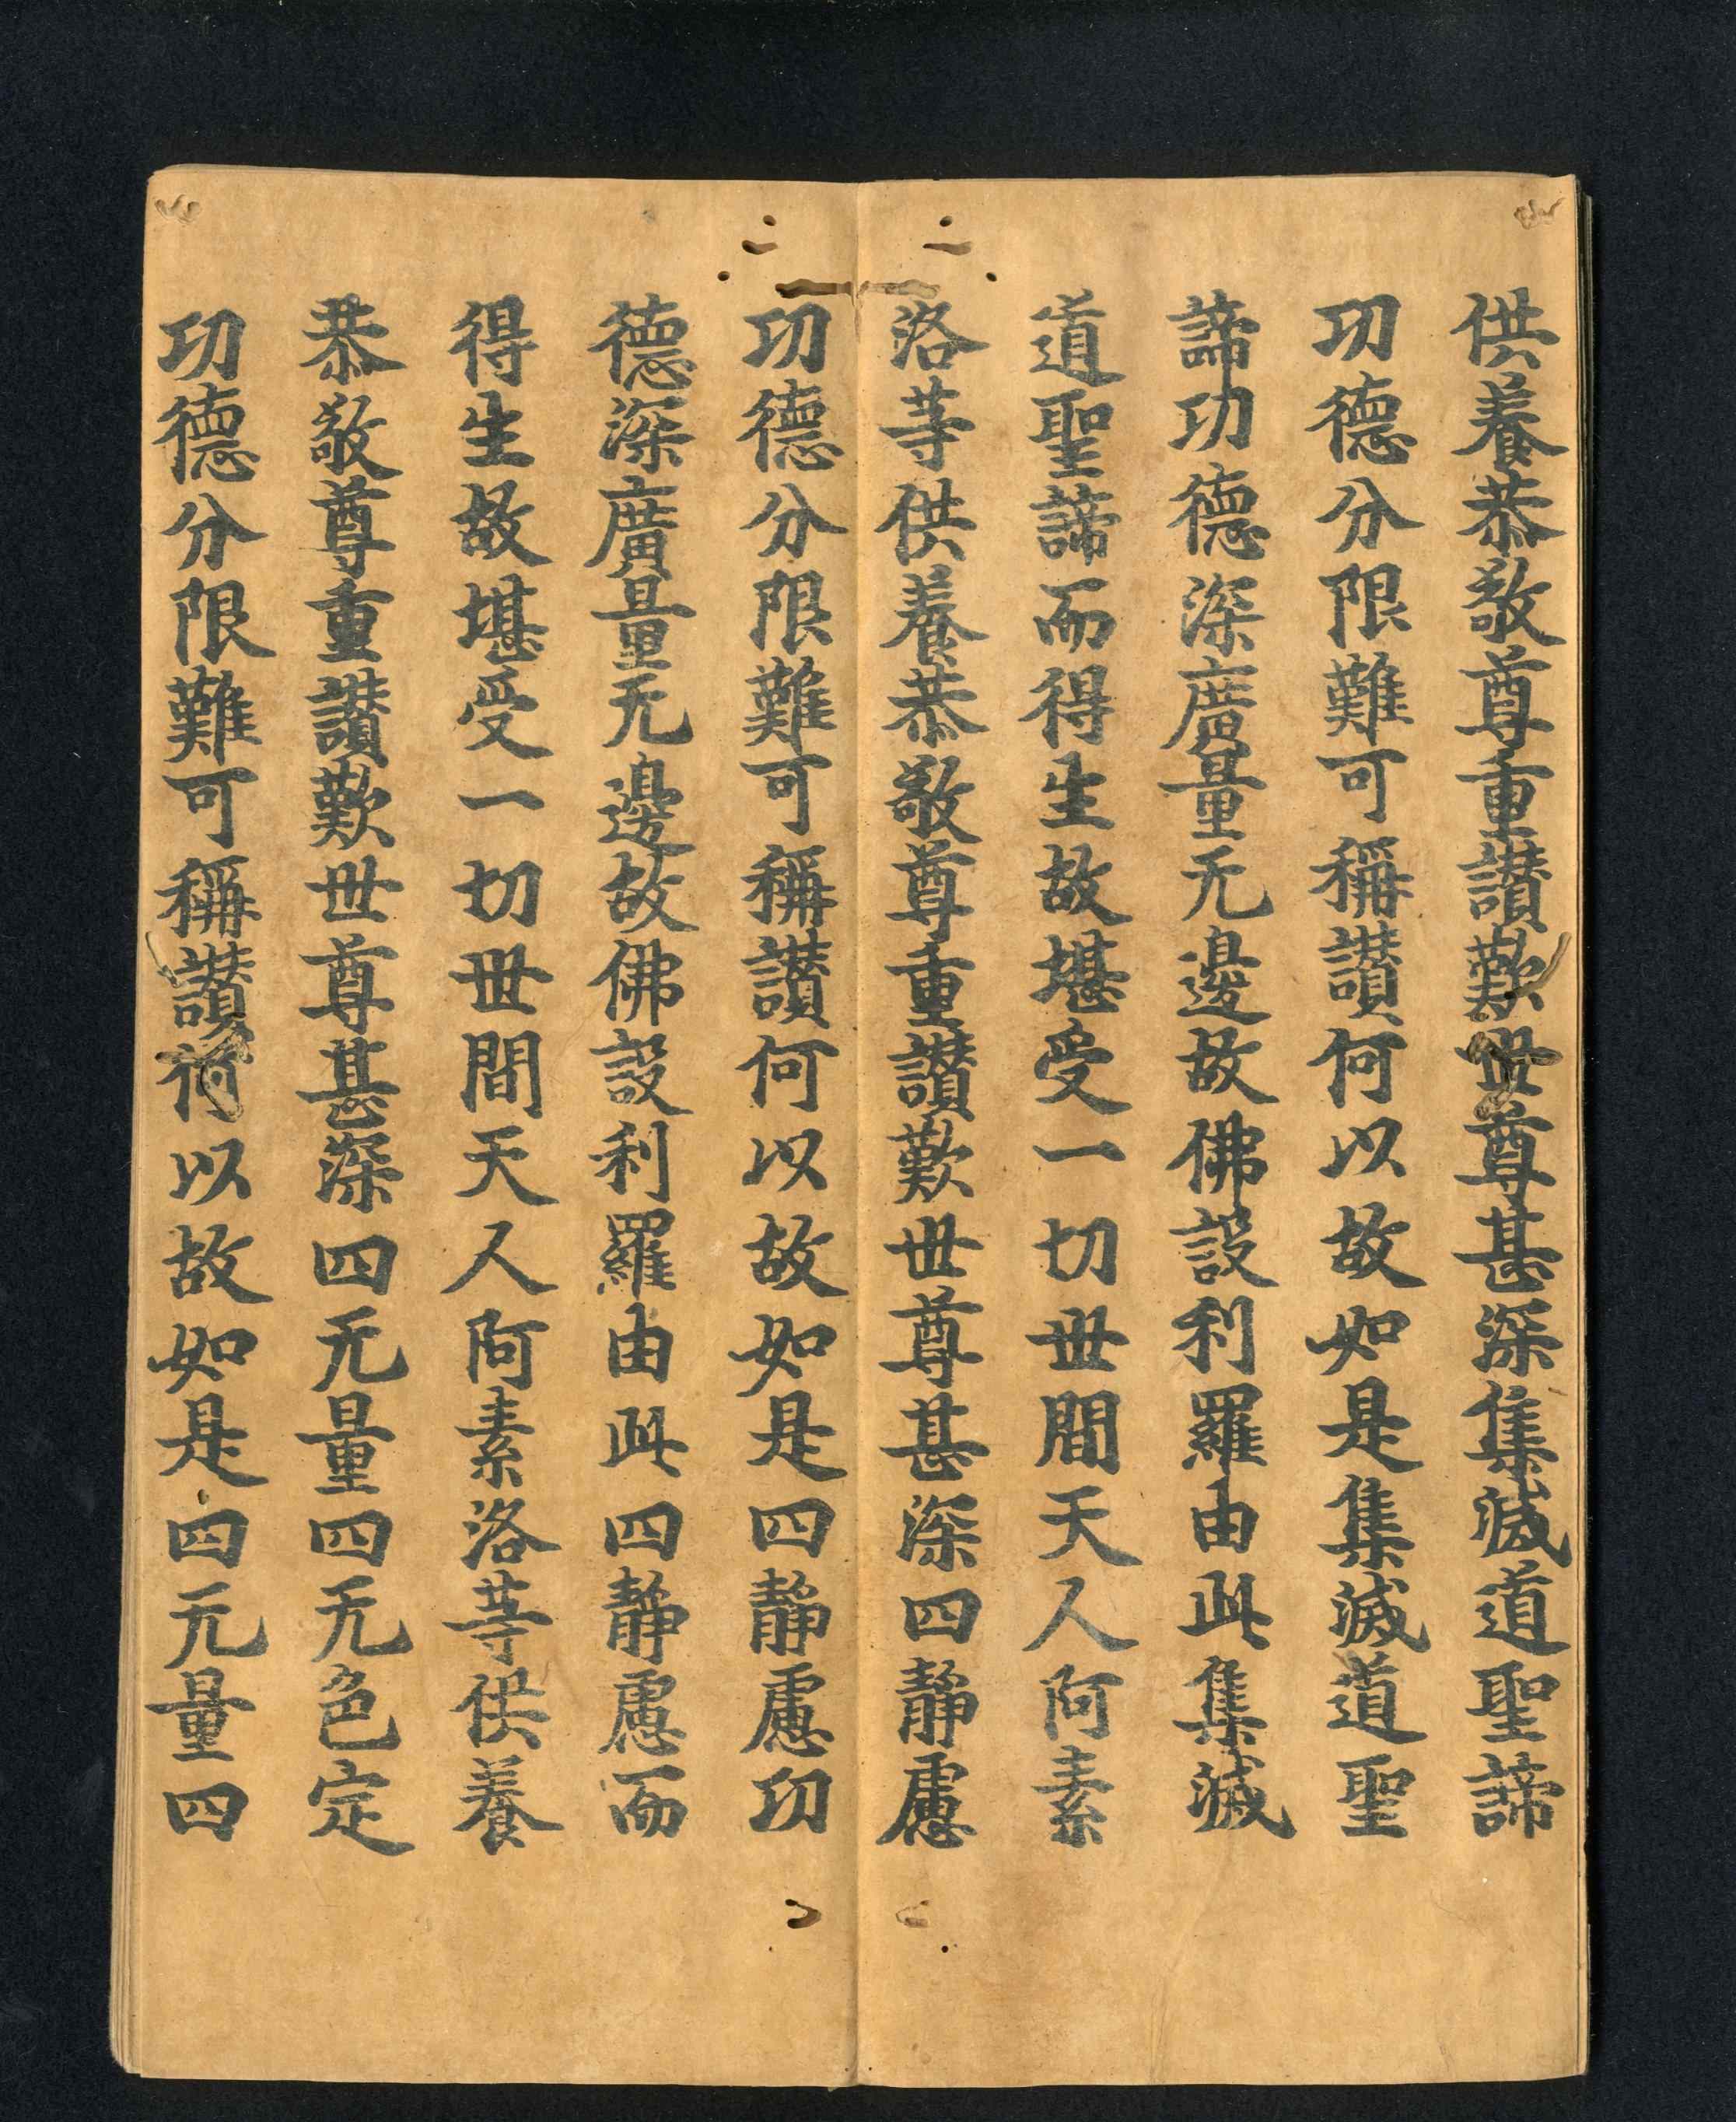 供養恭敬尊重讃歎世尊甚深集滅道聖諦
功德分限難可稱讃何以故如是集滅道聖
諦功德深廣量无邊故佛設利羅由此集滅
道聖諦而得生故堪受一切世間天人阿素
洛等供養恭敬尊重讃歎世尊甚深四靜慮
功德分限難可稱讃何以故如是四靜慮功
德深廣量无邊故佛設利羅由此四靜慮而
得生故堪受一切世間天人阿素洛等供養
恭敬尊重讃歎世尊甚深四无量四无色定
功德分限難可稱讃何以故如是四无量四